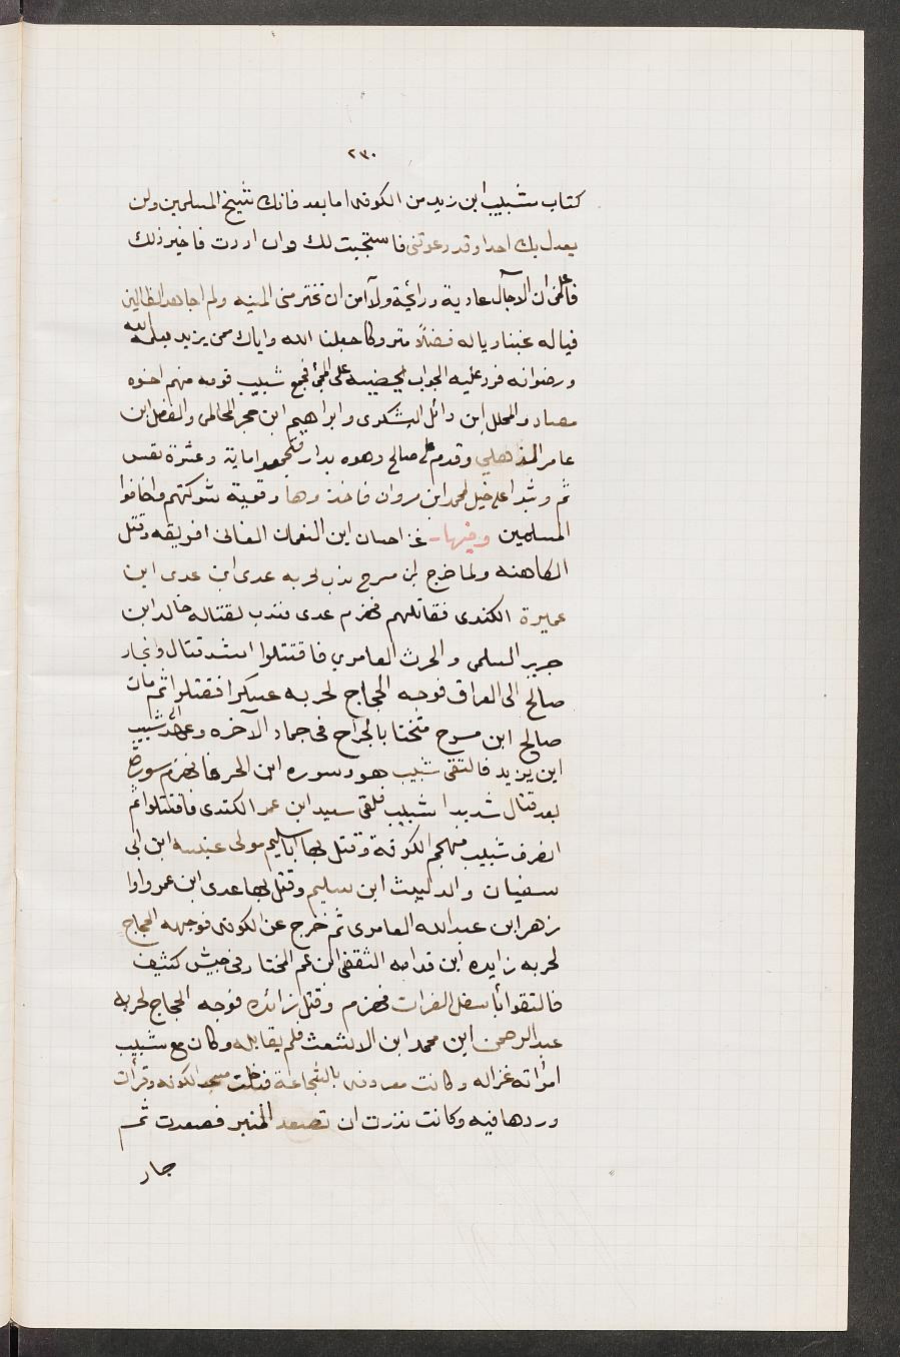 ٢٣٠
كتاب شبيب ابن زيد من الكوفه اما بعد فانك شيخ المسلمين ولن
يعدل بك احدا وقد دعوتنى فاستجبت لك وان اردت فاخير ذلك
فاعلمن ان الاجآل عادية ورائحة ولا آمن ان تخترمنى المنيه ولم اجاهد الظالمين
فياله غبنا وياله فضلاً متروكا جعلنا الله واياك ممن يزيد بعلمه الله
ورضوانه فرد عليه الجواب يحضيه على المجئ فجمع شبيب قومه منهم اخوه
مصاد والمحلل ابن وائل اليشكرى وابراهيم ابن حجر المحالمى والفضل ابن
عامر الذهلي وقدم على صالح وهوه بدار فتجمعوا ماية وعشرة نفس
ثم وشدا على خيل لمحمد ابن مروان فاخذوها وقوية شوكتهم واخافوا
المسلمين وفيها غزا حسان ابن النعمان الغانى افريقه وقتل
الكاهنه ولما خرج بن مسرح ندب لحربه عدى ابن عدى ابن
عميرة الكندى فقاتلهم فهزم عدى فندب لقتاله خالد ابن
جرير السلمى والحرث العامري فاقتتلوا اشد قتال وانحار
صالح الى العراق فوجه الحجاج لحربه عسكرا فقتلوا ثم مات
صالح ابن مسرح متخنا بالجراح فى جماد الآخره وعهد شبيب
ابن يزيد فالتقى شبيب هو وسوره ابن الحر فانهزم سورة
بعد قتال شديدا شبيب فلقى سعيد ابن عمر الكندى فاقتتلوا ثم
انصرف شبيب فهجم الكوفة وقتل بها اباسليم مولى عنبسه ابن ابى
سفيان والد ليث ابن سليم وقتل بها عدى ابن عمر واوا
زهر ابن عبدالله العامرى ثم خرج عن الكوفه فوجهه الحجاج
لحربه زايده ابن قدامه الثقفى ابن عم المختار فى جيش كثيف
فالتقوا بأسفل الفرات فهزم وقتل زائده فوجه الحجاج لحربه
عبدالرحمن ابن محمد ابن الاشعث فلم يقابله وكان مع شبيب
امرأته غزاله وكانت معروفه بالشجاعة فدخلت مسجد الكوفه وقرأت
وردها فيه وكانت نذرت ان تصعد المنبر فصعدت ثم
جار